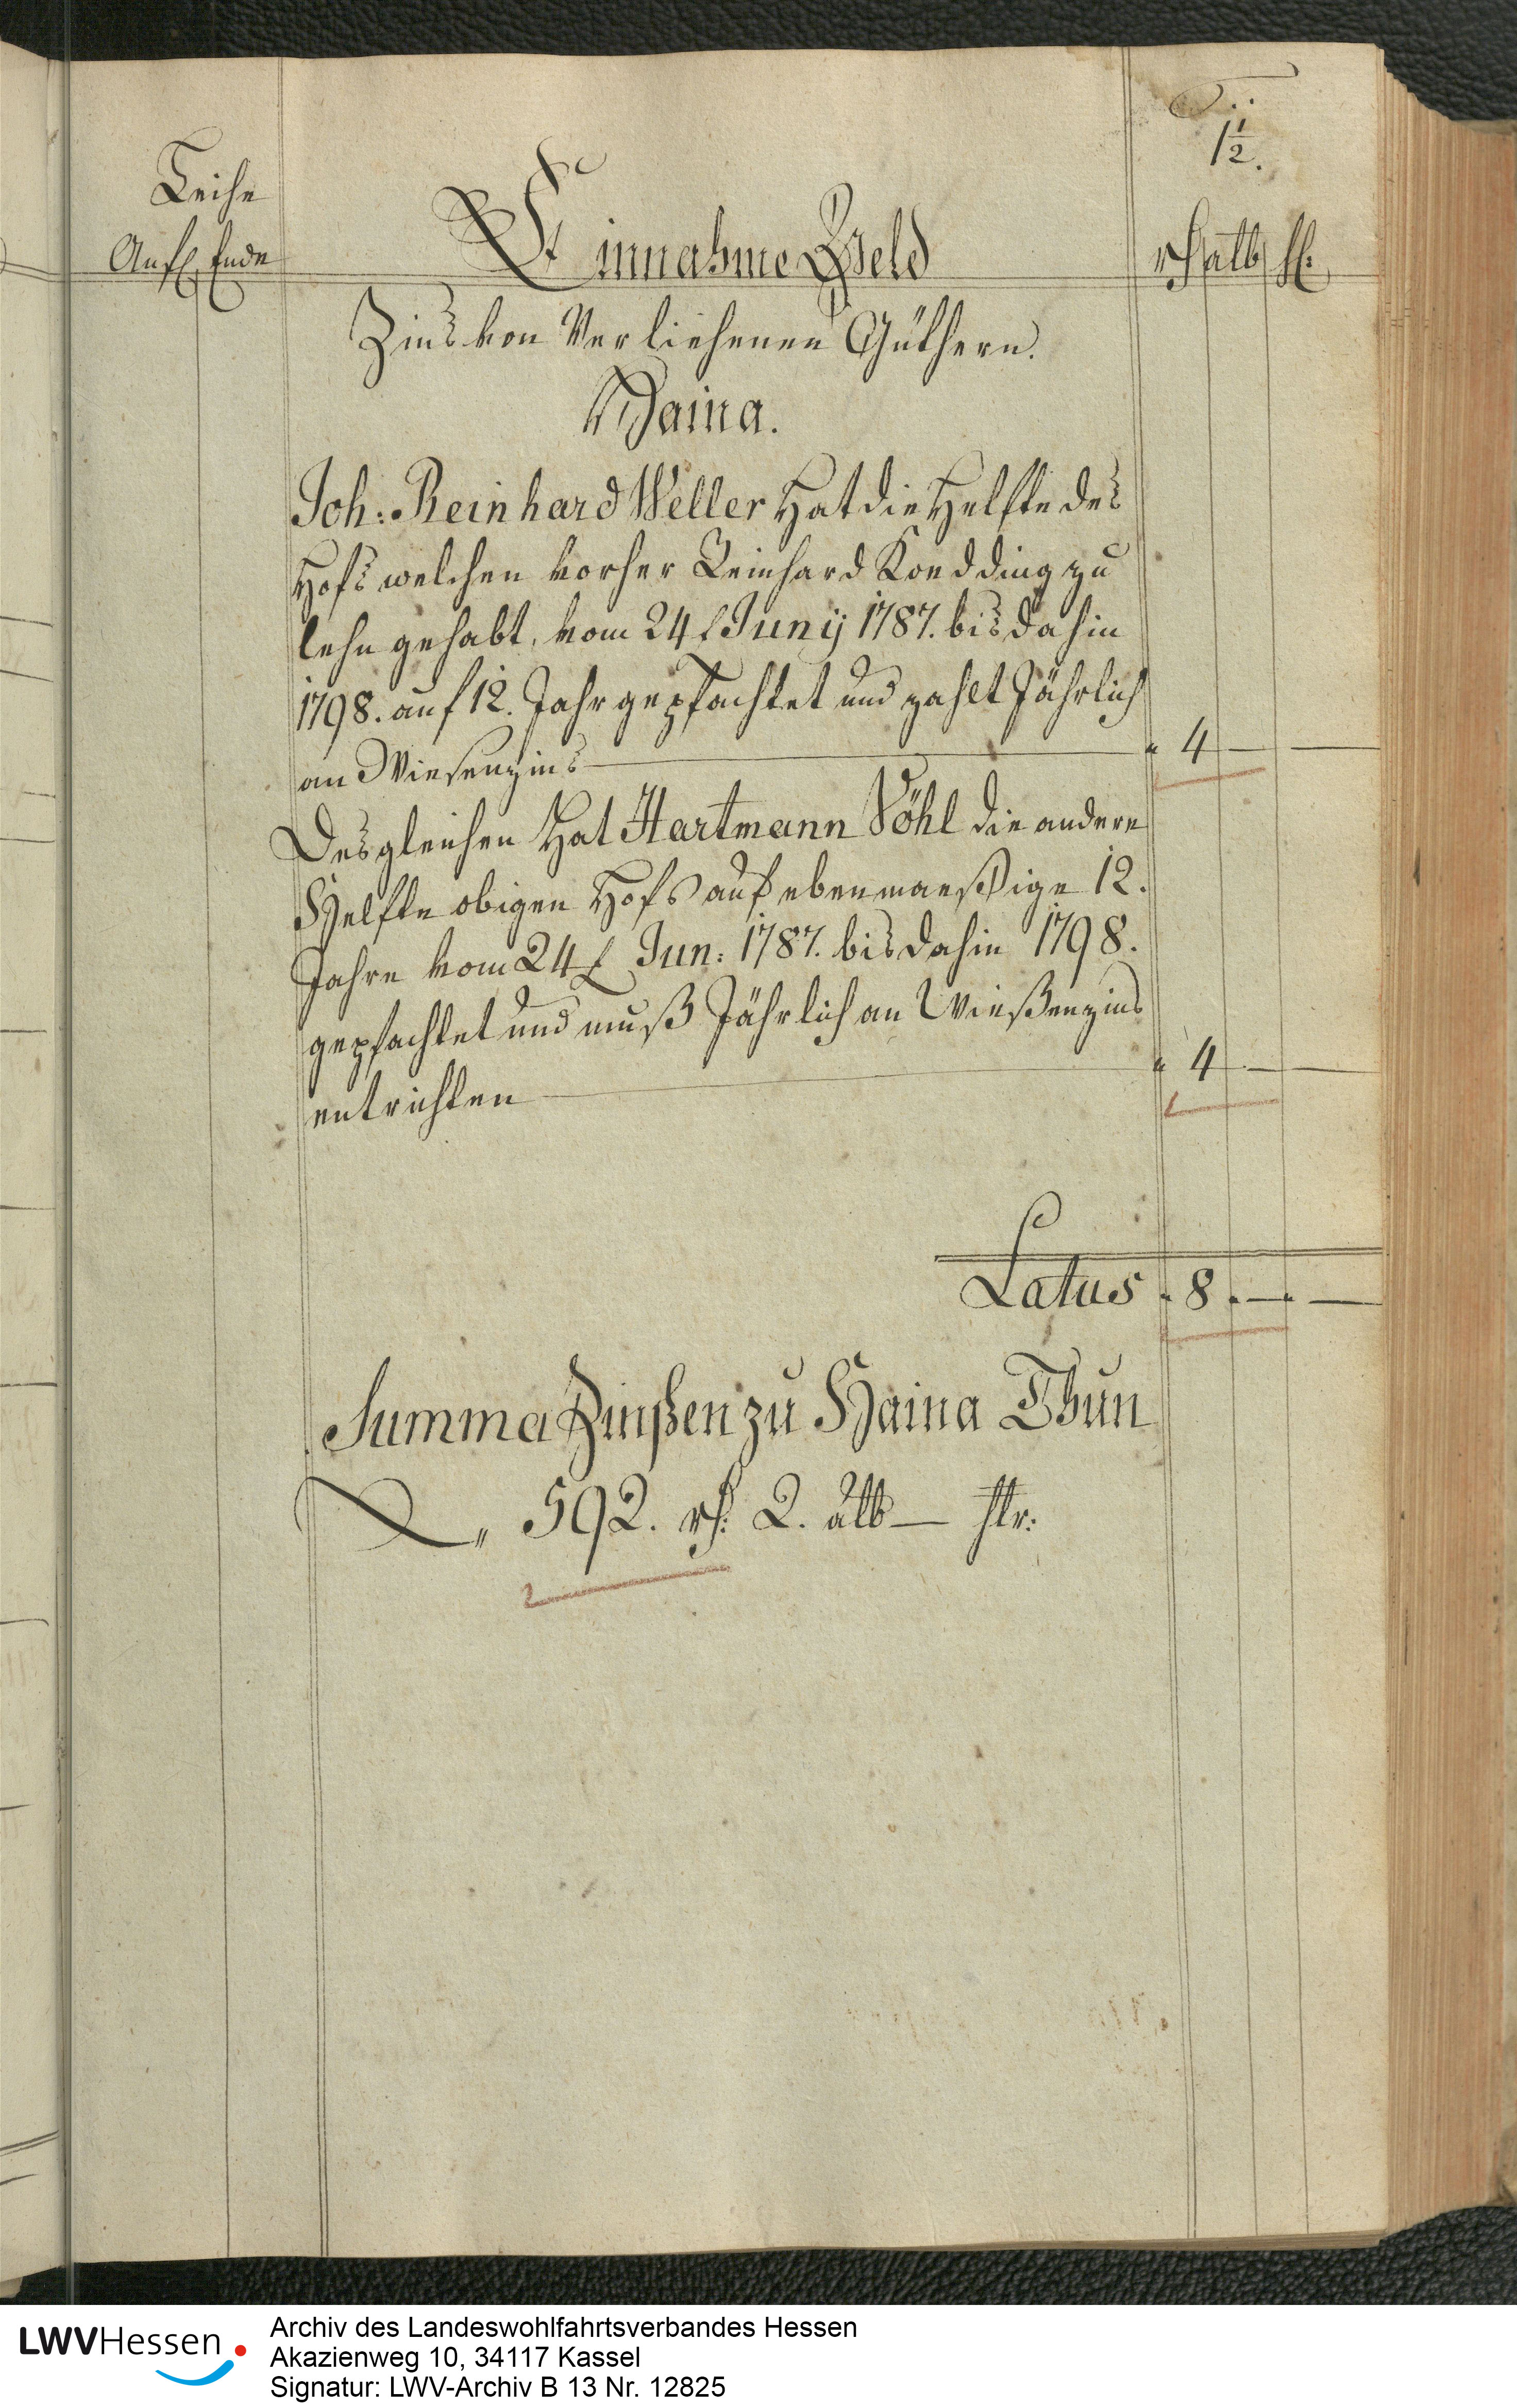 1 1/2.
Leihe
Anf. Ende
Einnahme Geld
rh alb hl:
Zins von Verliehenen Güthern.
Haina.
Joh: Reinhard Weller Hat die Helfte des
Hofs welchen vorher Reinhard Koedding zu
lehn gehabt, vom 24t Juny 1787. bis dahin
1798. auf 12. Jahr gepfachtet und zahlt Jährlich
an Wiesenzins „ 4 — —
Desgleichen Hat Hartmann Völh die andere
Helfte obigen Hofs auf ebenmaeßige 12.
Jahre vom 24t Jun: 1787. bis dahin 1798.
gepfachtet und muß Jährlich an Wießenzins
entrichten „ 4 — —
Latus . 8 . — . —
Summa Zinßen zu Haina Thun
„ 592. rh: 2. alb — hlr:
LWVHessen
Archiv des Landeswohlfahrtsverbandes Hessen
Akazienweg 10, 34117 Kassel
Signatur: LWV-Archiv B 13 Nr. 12825